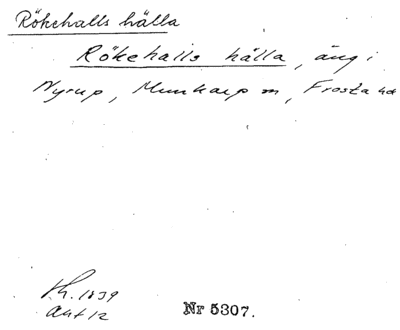 Rökehalls hälla
Rökehalls hälla, äng i
Nyrup, Munkarp sn, Frosta hd
Lh. 1839
akt 12
Nr 5307.